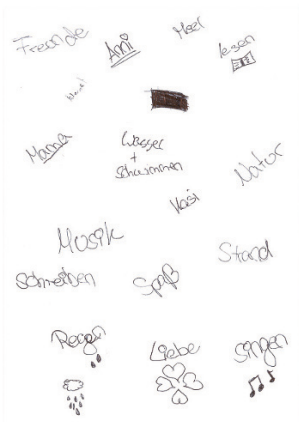 Freunde
Ani
Meer
lesen
Mama
Wasser
+
Schwimmen
Natur
Musik
Strand
Schreiben
Spaß
Regen
Liebe
singen